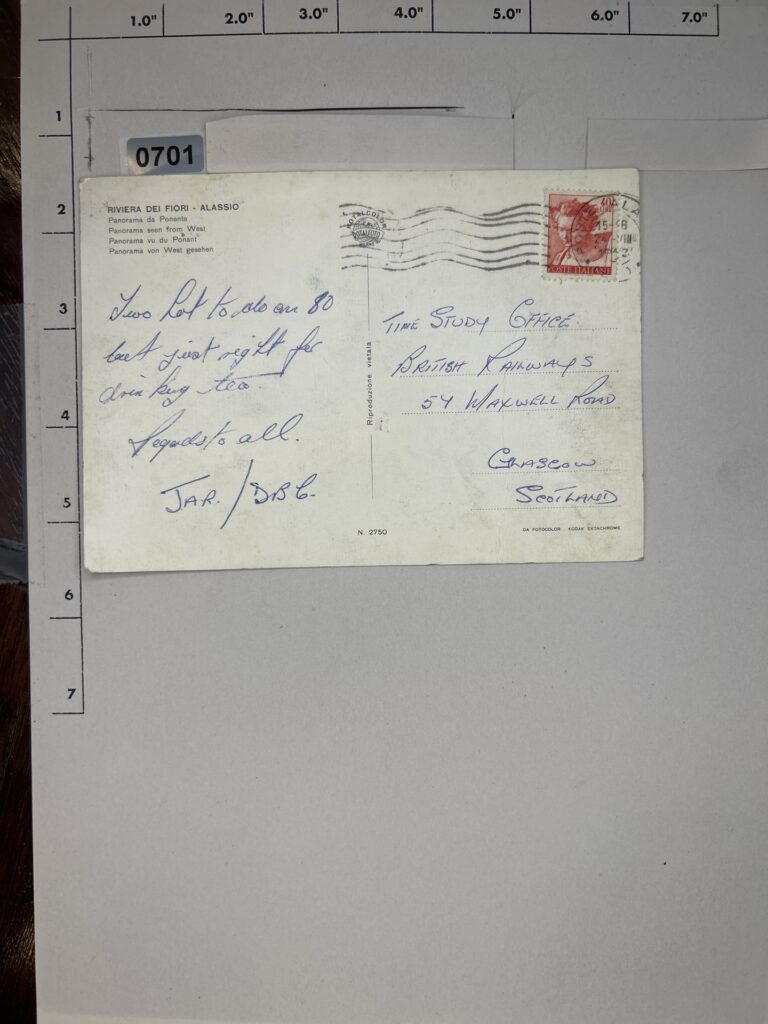 1.0" 2.0" 3.0" 4.0" 5.0" 6.0" 7.0"
1
2
3
4
5
6
7
0701
RIVIERA DEI FIORI - ALASSIO
Panorama da Ponente
Panorama seen from West
Panorama vu du Ponant
Panorama von West gesehen
ROTALCOLOR
ROTALFOTO
MILANO
40
POSTE ITALIANE
15-16
Two hot to do an 80
but just right for
drinking tea.
Regards to all.
JAR. / DBC.
Riproduzione vietata
TIME STUDY OFFICE
BRITISH RAILWAYS
54 MAXWELL ROAD
GLASGOW
SCOTLAND
N. 2750
DA FOTOCOLOR KODAK EKTACHROME